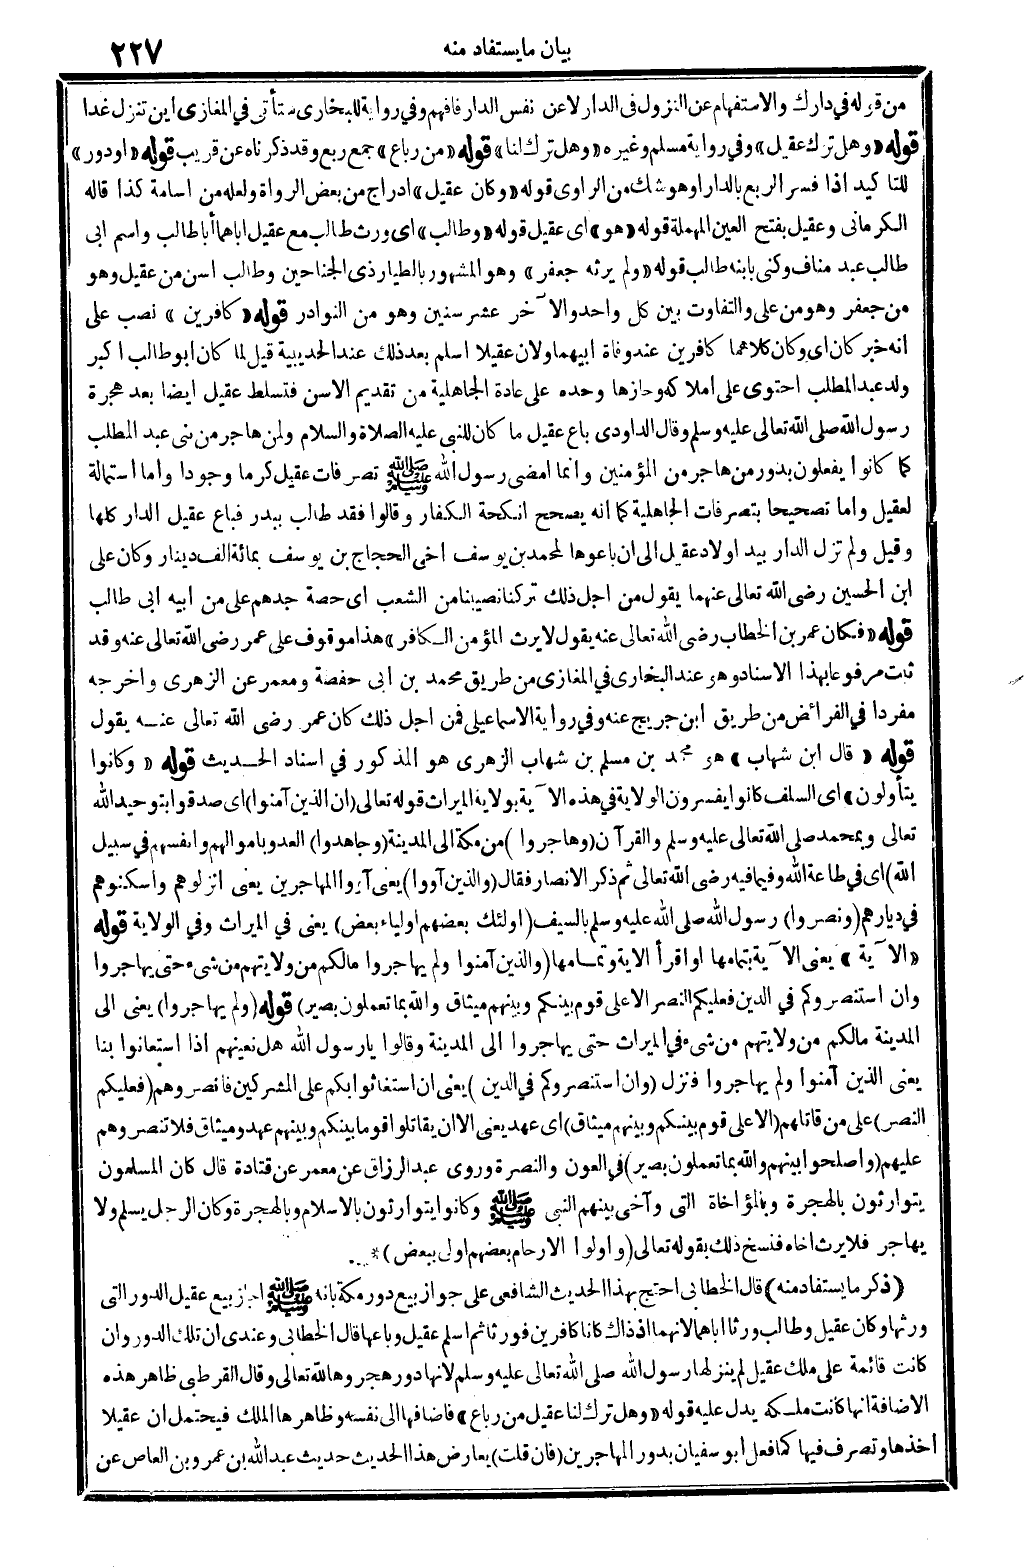 بيان مايستفاد منه ٢٢٧
من قوله في دارك والاستفهام عن النزول فى الدار لا عن نفس الدار فافهم وفي رواية للبخارى ستأتى في المغازى اين تنزل غدا
قوله «وهل ترك عقيل» وفي رواية مسلم وغيره «وهل ترك لنا» قوله «من رباع» جمع ربع وقد ذكرناه عن قريب قوله «او دور»
للتاكيد اذا فسر الربع بالدار او هو شك من الراوى قوله «وكان عقيل» ادراج من بعض الرواة ولعله من اسامة كذا قاله
الكرمانى وعقيل بفتح العين المهملة قوله «هو» اى عقيل قوله «وطالب» اى ورث طالب مع عقيل اباهما أبا طالب واسم ابى
طالب عبد مناف وكنى بابنه طالب قوله «ولم يرثه جعفر» وهو المشهور بالطيار ذى الجناحين وطالب اسن من عقيل وهو
من جعفر وهو من على والتفاوت بين كل واحد والآخر عشر سنين وهو من النوادر قوله «كافرين» نصب على
انه خبر كان اى وكان كلاهما كافرين عند وفاة ابيهما ولان عقيلا اسلم بعد ذلك عند الحديبية قيل لما كان ابو طالب اكبر
ولد عبد المطلب احتوى على املاكه وحازها وحده على عادة الجاهلية من تقديم الاسن فتسلط عقيل ايضا بعد هجرة
رسول الله صلى الله تعالى عليه وسلم وقال الداودى باع عقيل ما كان للنبي عليه الصلاة والسلام ولمن هاجر من بنى عبد المطلب
كما كانوا يفعلون بدور من هاجر من المؤمنين وانما امضى رسول الله ﷺ تصرفات عقيل كرما وجودا واما استمالة
لعقيل واما تصحيحا بتصرفات الجاهلية كما انه يصحح انكحة الكفار وقالوا فقد طالب ببدر فباع عقيل الدار كلها
وقيل ولم تزل الدار بيد اولاد عقيل الى ان باعوها لمحمد بن يوسف اخى الحجاج بن يوسف بمائة الف دينار وكان على
ابن الحسين رضى الله تعالى عنهما يقول من اجل ذلك تركنا نصيبنا من الشعب اى حصة جدهم على من ابيه ابى طالب
قوله «فكان عمر بن الخطاب رضى الله تعالى عنه يقول لا يرث المؤمن الكافر» هذا موقوف على عمر رضى الله تعالى عنه وقد
ثبت مرفوعا بهذا الاسناد وهو عند البخارى في المغازى من طريق محمد بن ابى حفصة ومعمر عن الزهرى واخرجه
مفردا في الفرائض من طريق ابن جريج عنه وفي رواية الاسماعيلى فمن اجل ذلك كان عمر رضى الله تعالى عنه يقول
قوله «قال ابن شهاب» هو محمد بن مسلم بن شهاب الزهرى هو المذكور في اسناد الحديث قوله «وكانوا
يتأولون» اى السلف كانوا يفسرون الولاية في هذه الآية بولاية الميراث قوله تعالى (ان الذين آمنوا) اى صدقوا بتوحيد الله
تعالى وبمحمد صلى الله تعالى عليه وسلم والقرآن (وهاجروا) من مكة الى المدينة (وجاهدوا) العدو باموالهم وانفسهم في سبيل
الله) اى في طاعة الله وفيما فيه رضى الله تعالى ثم ذكر الانصار فقال (والذين آووا) يعنى آووا المهاجرين يعنى انزلوهم واسكنوهم
في ديارهم (ونصروا) رسول الله صلى الله عليه وسلم بالسيف (اولئك بعضهم اولياء بعض) يعنى في الميراث وفي الولاية قوله
«الآية» يعنى الآية بتمامها او اقرأ الاية وتمامها (والذين آمنوا ولم يهاجروا مالكم من ولايتهم من شىء حتى يهاجروا
وان استنصروكم في الدين فعليكم النصر الا على قوم بينكم وبينهم ميثاق والله بما تعملون بصير) قوله (ولم يهاجروا) يعنى الى
المدينة مالكم من ولايتهم من شىء في الميراث حتى يهاجروا الى المدينة وقالوا يارسول الله هل نعينهم اذا استعانوا بنا
يعنى الذين آمنوا ولم يهاجروا فنزل (وان استنصروكم في الدين) يعنى ان استغاثوا بكم على المشركين فانصروهم (فعليكم
النصر) على من قاتلهم (الا على قوم بينكم وبينهم ميثاق) اى عهد يعنى الا ان يقاتلوا قوما بينكم وبينهم عهد وميثاق فلا تنصروهم
عليهم (واصلحوا بينهم والله بما تعملون بصير) في العون والنصرة وروى عبد الرزاق عن معمر عن قتادة قال كان المسلمون
يتوارثون بالهجرة وبالمؤاخاة التى وآخى بينهم النبى ﷺ وكانوا يتوارثون بالاسلام وبالهجرة وكان الرجل يسلم ولا
يهاجر فلا يرث اخاه فنسخ ذلك بقوله تعالى (واولوا الارحام بعضهم اولى ببعض) *
(ذكر ما يستفاد منه) قال الخطابى احتج بهذا الحديث الشافعى على جواز بيع دور مكة بانه ﷺ اجاز بيع عقيل الدور التى
ورثها وكان عقيل وطالب ورثا اباهما لانهما اذ ذاك كانا كافرين فورثا ثم اسلم عقيل وباعها قال الخطابى وعندى ان تلك الدور وان
كانت قائمة على ملك عقيل لم ينزلها رسول الله صلى الله تعالى عليه وسلم لانها دور هجروها لله تعالى وقال القرطبى ظاهر هذه
الاضافة انها كانت ملكه يدل عليه قوله «وهل ترك لنا عقيل من رباع» فاضافها الى نفسه وظاهرها الملك فيحتمل ان عقيلا
أخذها وتصرف فيها كما فعل ابو سفيان بدور المهاجرين (فان قلت) يعارض هذا الحديث حديث عبد الله بن عمرو بن العاص عن